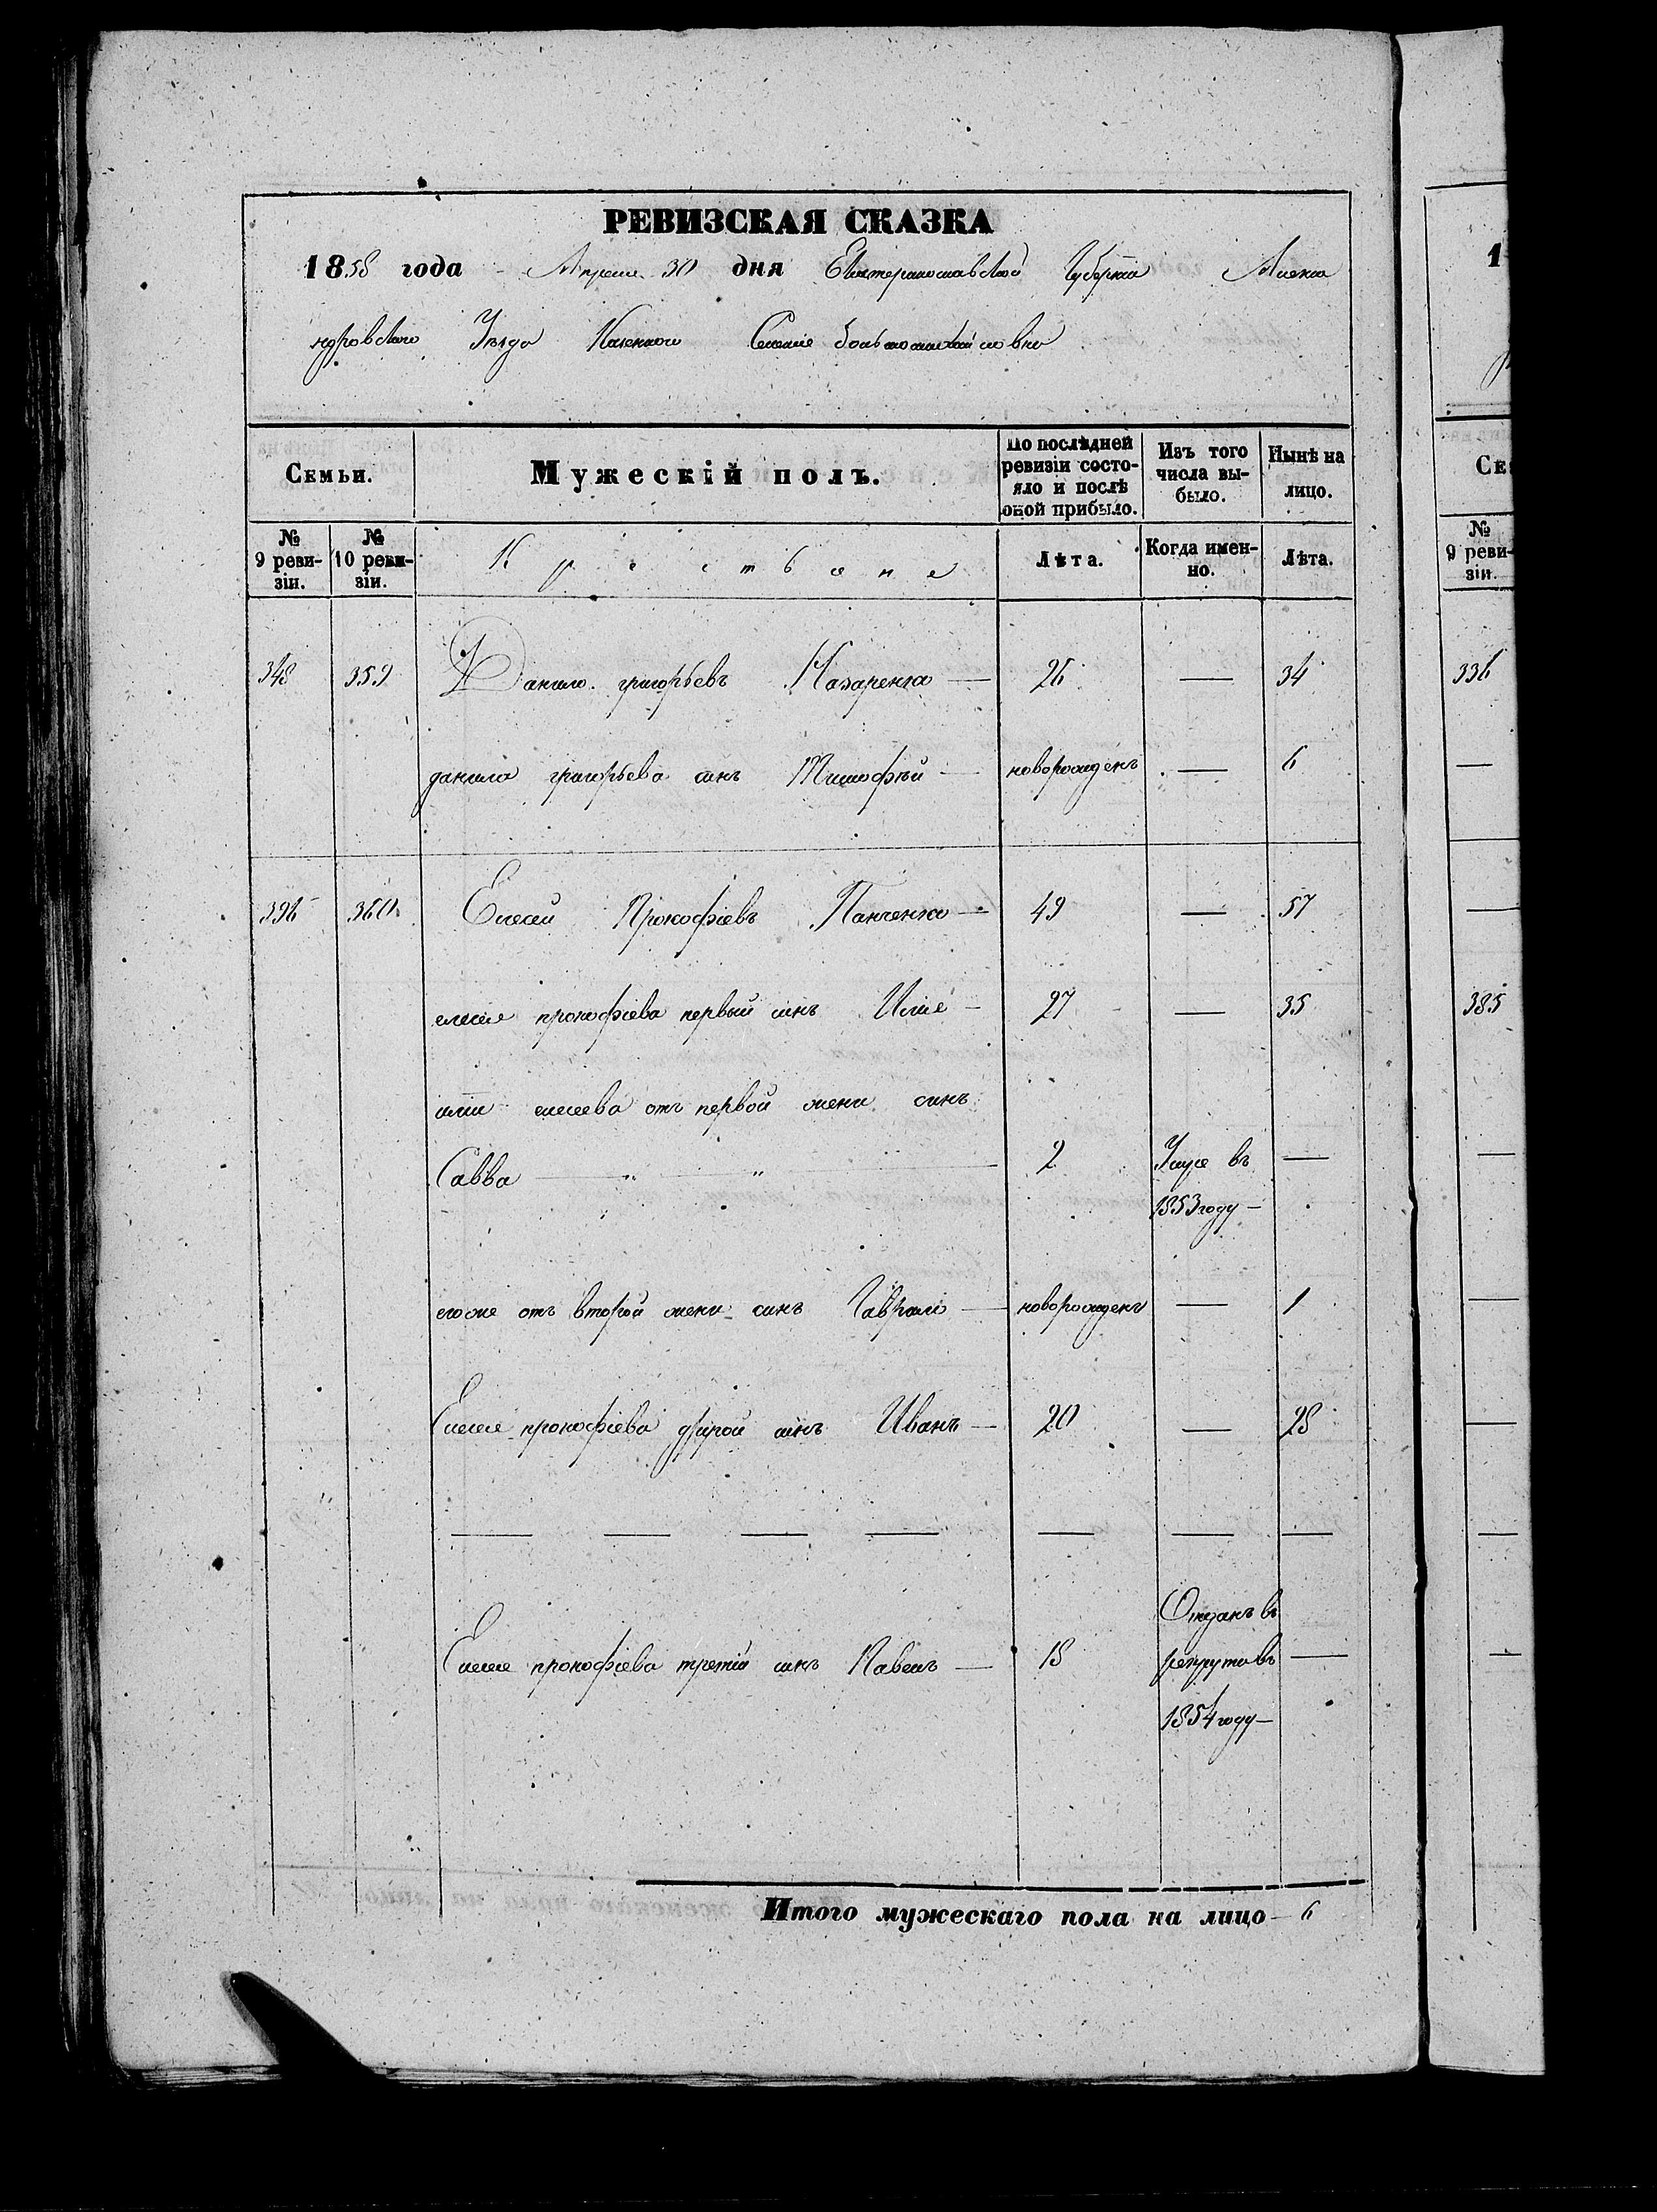 РЕВИЗСКАЯ СКАЗКА
1858 года Апреля 30 дня Екатеринославской Губернии Алекса
ндровского Уезда Казенного Селения большомихайловки
Семьи. Мужескій полъ. По послѣдней ревизіи состо-яло и послѣ оной прибыло. Изъ того числа вы-было. Нынѣ на лицо.
№ 9 реви-зіи. № 10 реви-зіи. Крестьяне Лѣта. Когда имен-но. Лѣта.
348 359 Данило григорьевъ Назаренко — 26 — 34
данила григорьева синъ Тимофѣй — новорожденъ — 6
396 360 Елисей Прокофіевъ Панченко — 49 — 57
елисея прокофіева первый синъ Илия — 27 — 35
илии елисеева отъ первой жени синъ
Савва — " — " — 2 Умре въ —
1853 году —
его же отъ второй жени синъ Гаврило — новорожденъ — 1
Елисея прокофіева другой синъ Иванъ — 20 — 28
— — — — — — —
Отданъ въ
Елисея прокофіева третій синъ Павелъ — 18 рекрути въ —
1854 году —
Итого мужескаго пола на лицо — 6
1
Се
№ 9 реви-зіи.
336
—
—
385
—
—
—
—
—
—